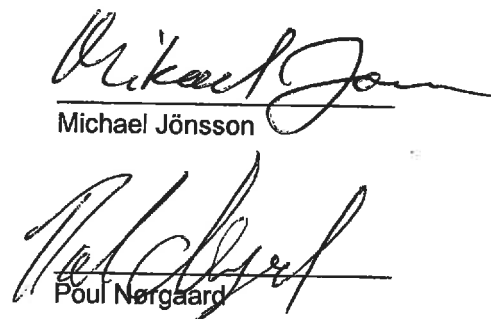 Mikael Jon
Michael Jönsson
Poul Nørgaard